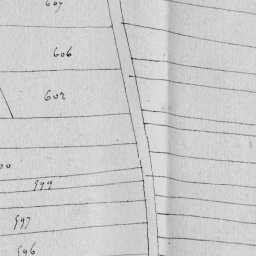 607
606
602
599
597
596